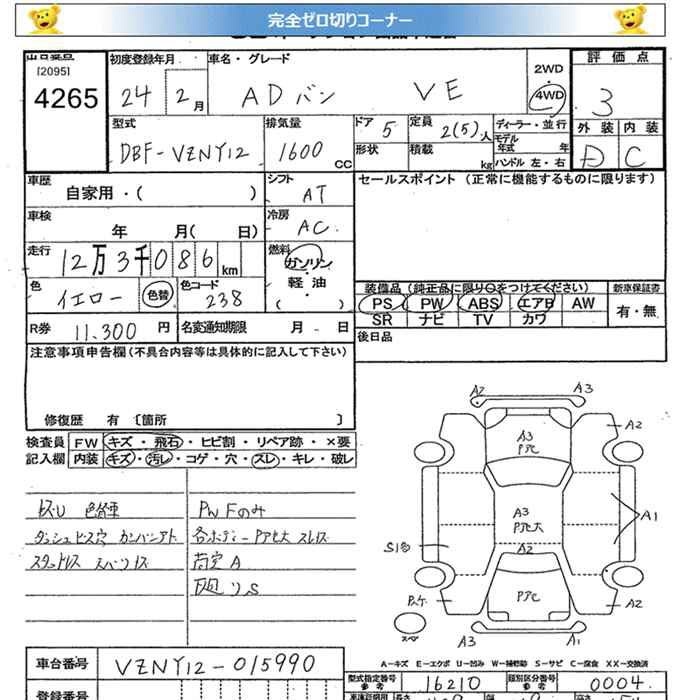 完全ゼロ切りコーナー
出品番号 初度登録年月 車名・グレード 評価点
[2095]
4265 24 2月 ADバン VE 2WD 4WD 3
外装 内装
D C
型式 排気量 ドア 定員 ディーラー・並行
DBF-VZNY12 1600cc 5 2(5)人 モデル年式 年
形状 積載 kg ハンドル 左・右
車歴 シフト セールスポイント (正常に機能するものに限ります)
自家用・( ) AT
車検 冷房
年 月( 日) AC
走行 燃料
12万3千086km ガソリン・軽油・( )
色 色コード 装備品(純正品に限り○をつけてください) 新車保証書
イエロー 色替 238 PS PW ABS エアB AW 有・無
SR ナビ TV カワ
R券 11,300円 名変通知期限 月 - 日 後日品
注意事項申告欄(不具合内容等は具体的に記入して下さい)
修復歴 有 〔箇所 〕
検査員 FW キズ・飛石・ヒビ割・リペア跡・×要
記入欄 内装 キズ・汚レ・コゲ・穴・スレ・キレ・破レ
PWFのみ
ダッシュビス穴 カンバンアト
スタッドレス
A2 A3
A3 A2
Pアセ
A3
Pアセ大 A1
S1
Pアセ A2
A3 A1
A=キズ E=エクボ U=凹み W=補修跡 S=サビ C=腐食 XX=交換済
車台番号 VZNY12-015990
型式指定番号 参考 16210 類別区分番号 参考 0004
登録番号